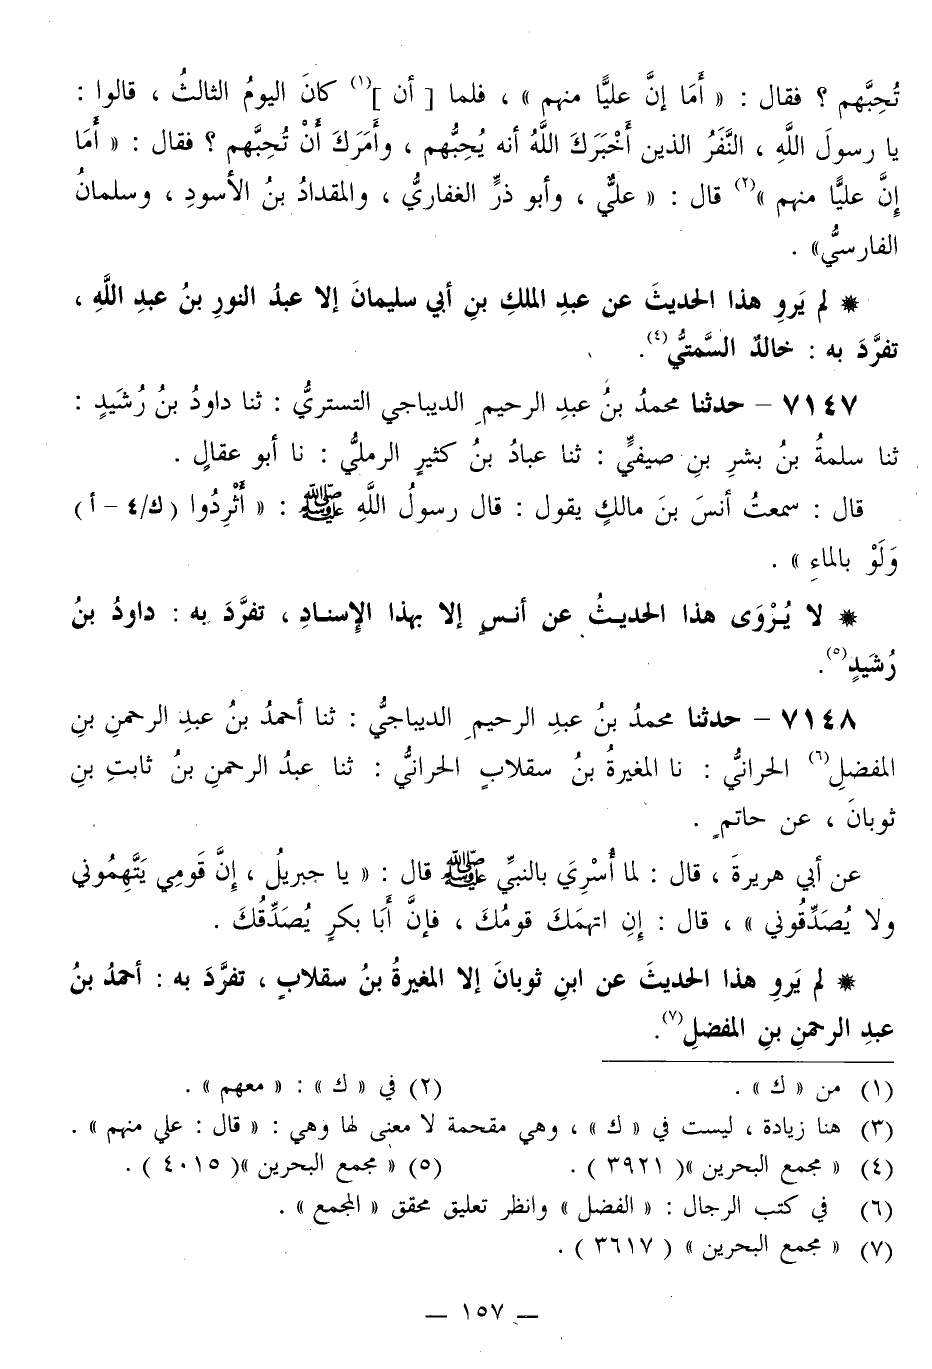 تُحِبَّهم ؟ فقال : « أَمَا إنَّ عليًّا منهم » ، فلما [ أن ]⁽¹⁾ كانَ اليومُ الثالثُ ، قالوا :
يا رسولَ اللَّهِ ، النَّفَرُ الذين أَخْبَرَكَ اللَّهُ أنه يُحِبُّهم ، وأَمَرَكَ أَنْ تُحِبَّهم ؟ فقال : « أَمَا
إِنَّ عليًّا منهم »⁽٢⁾ قال : « عليٌّ ، وأبو ذرٍّ الغفاريُّ ، والمقدادُ بنُ الأسودِ ، وسلمانُ
الفارسيُّ» .
* لم يَروِ هذا الحديثَ عن عبدِ الملكِ بنِ أبي سليمانَ إلا عبدُ النورِ بنُ عبدِ اللَّهِ ،
تفرَّدَ به : خالدٌ السَّمتيُّ⁽٤⁾.
٧١٤٧ – حدثنا محمدُ بنُ عبدِ الرحيمِ الديباجي التستريُّ : ثنا داودُ بنُ رُشَيدٍ :
ثنا سلمةُ بنُ بشرِ بنِ صيفيٍّ : ثنا عبادُ بنُ كثيرٍ الرمليُّ : نا أبو عقالٍ .
قال : سمعتُ أنسَ بنَ مالكٍ يقول : قال رسولُ اللَّهِ ﷺ : « أَثْرِدُوا ( ك/٤ – أ )
وَلَوْ بالماءِ » .
* لا يُرْوَى هذا الحديثُ عن أنسٍ إلا بهذا الإِسنادِ ، تفرَّدَ به : داودُ بنُ
رُشَيدٍ⁽٥⁾.
٧١٤٨ – حدثنا محمدُ بنُ عبدِ الرحيمِ الديباجيُّ : ثنا أحمدُ بنُ عبدِ الرحمنِ بنِ
المفضلِ⁽٦⁾ الحرانيُّ : نا المغيرةُ بنُ سقلابٍ الحرانيُّ : ثنا عبدُ الرحمنِ بنُ ثابتِ بنِ
ثوبانَ ، عن حاتمٍ .
عن أبي هريرةَ ، قال : لما أُسْرِيَ بالنبيِّ ﷺ قال : « يا جبريلُ ، إِنَّ قَومِي يَتَّهِمُوني
ولا يُصَدِّقُوني » ، قال : إِنِ اتهمَكَ قومُكَ ، فإنَّ أَبَا بكرٍ يُصَدِّقُكَ .
* لم يَروِ هذا الحديثَ عن ابنِ ثوبانَ إلا المغيرةُ بنُ سقلابٍ ، تفرَّدَ به : أحمدُ بنُ
عبدِ الرحمنِ بنِ المفضلِ⁽٧⁾.
(١) من « ك » . (٢) في « ك » : « معهم » .
(٣) هنا زيادة ، ليست في « ك » ، وهي مقحمة لا معنى لها وهي : « قال : علي منهم » .
(٤) « مجمع البحرين »( ٣٩٢١ ) . (٥) « مجمع البحرين »( ٤٠١٥ ) .
(٦) في كتب الرجال : « الفضل » وانظر تعليق محقق « المجمع » .
(٧) « مجمع البحرين » ( ٣٦١٧ ) .
— ١٥٧ —